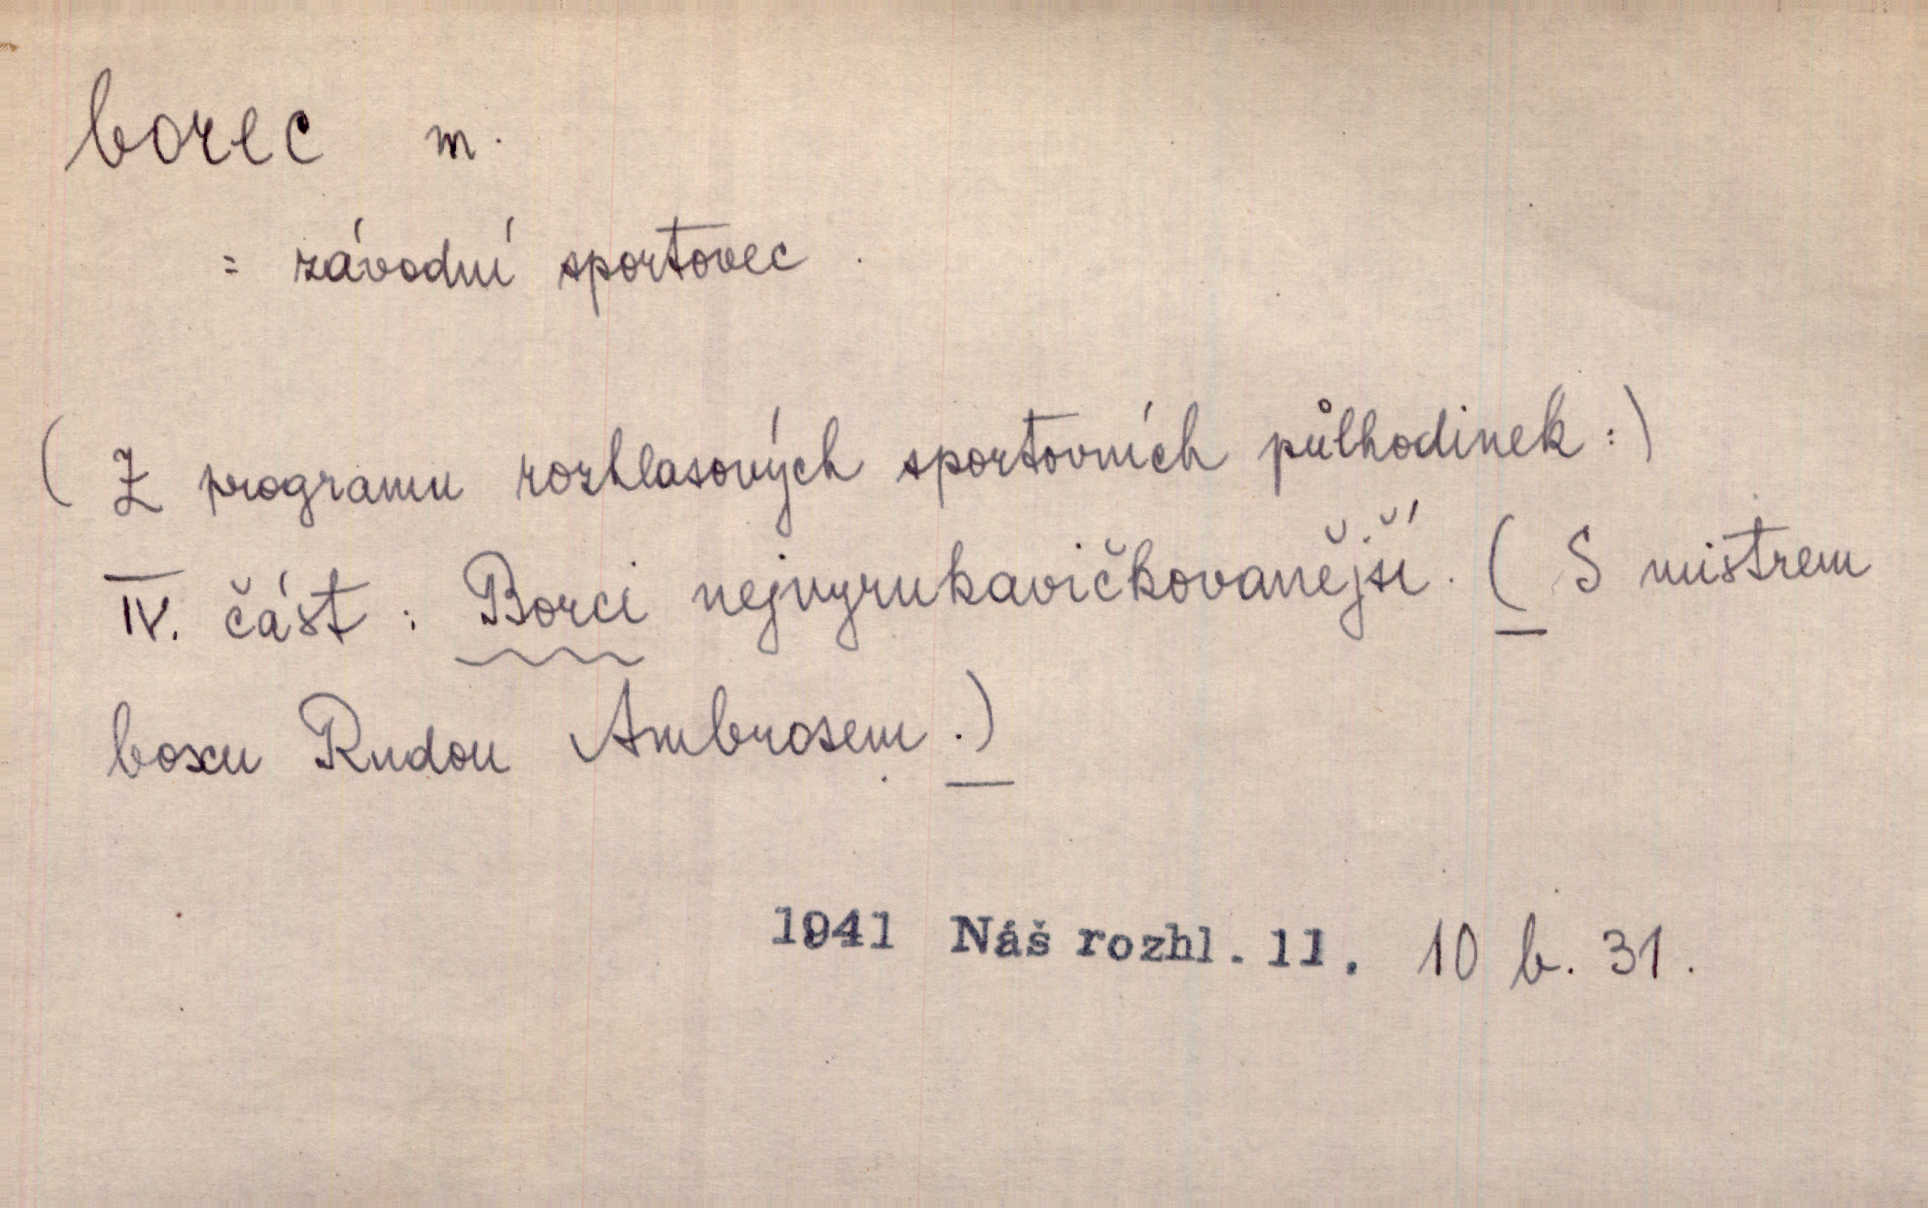 borec m.
= závodní sportovec.
(Z programu rozhlasových sportovních půlhodinek:)
IV. část: Borci nejvyrukavičkovanější. (S mistrem
boxu Rudou Ambrosem.)
1941 Náš rozhl. 11. 10 b. 31.